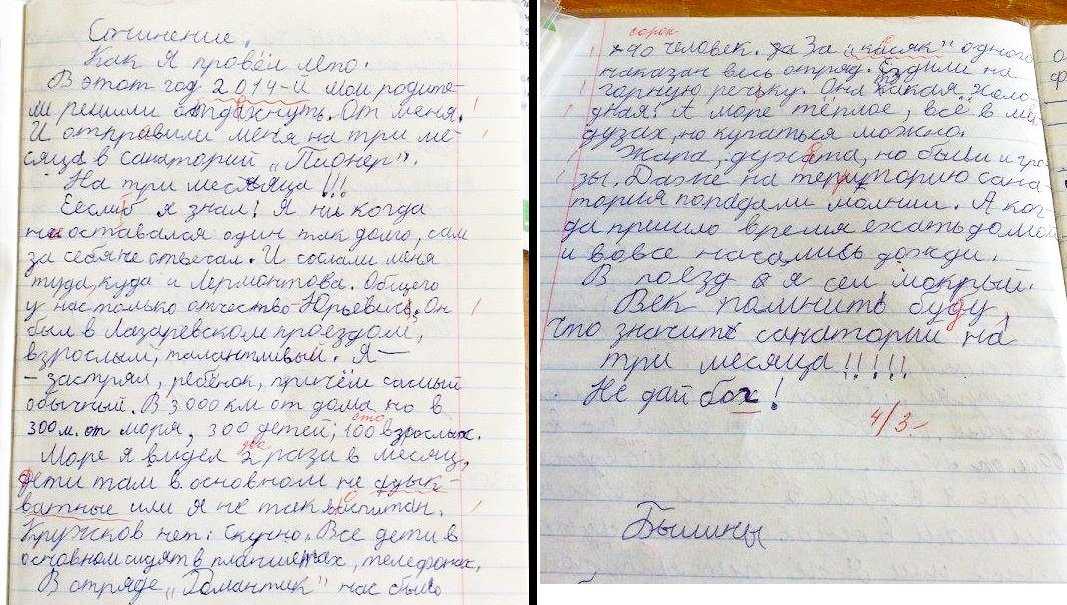 Сочинение.
Как Я провёл лето.
В этот год 2014-й мои родите-
ли решили отдахнуть. От меня.
И отправили меня на три ме-
сяца в санаторий „Пионер".
На три месяца!!!
Еслиб я знал! Я ни когда
не оставался один так долго, сам
за себя не отвечал. И сослали меня
туда, куда и Лермонтова. Общего
у нас только отчество Юрьевич. Он
был в Лазаревском проездом,
взрослым, талантливый. Я—
- застрял, ребёнок, причём самый
обычный. В 3000 км от дома но в
300 м. от моря, 300 детей, 100 взрослых.
сто
Море я видел 2 раза в месяц,
два
дети там в основном не адык-
ватные или я не так воспитан.
Кружков нет. Скучно. Все дети в
основном сидят в планшетах, телефонах.
В отряде „Романтик" нас было
сорок
40 человек. За „касяк" одного
наказан весь отряд. Ездили на
горную речьку. Она какая холо-
дная! А море тёплое, всё в ме-
дузах, но купаться можно.
Жара, духата, но были и гро-
зы. Даже на територию сана-
тория попадали молнии. А ког-
да пришло время ехать домой
и вовсе начались дожди.
В поезд я сел мокрый.
Век помнить буду,
что значит санаторий на
три месяца!!!!!
Не дай бог!
4/3-
Былины